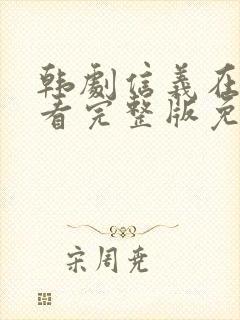 韩剧信义在
看完整版免
宋周尧